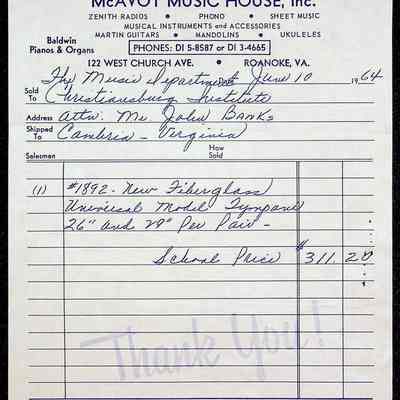 McAVOY MUSIC HOUSE, Inc.
ZENITH RADIOS • PHONO • SHEET MUSIC
MUSICAL INSTRUMENTS and ACCESSORIES
MARTIN GUITARS • MANDOLINS • UKULELES
Baldwin
Pianos & Organs
PHONES: DI 5-8587 or DI 3-4665
122 WEST CHURCH AVE. • ROANOKE, VA.
The Music Department June 10 1964
Sold To Christiansburg Institute
Address Attn. Mr. John Banks
Shipped To Cambria - Virginia
Salesman How Sold
(1) #1892 - New Fiberglass
Universal Model Tympani
26" and 29" Per Pair -
School Price $311.20
Thank You!